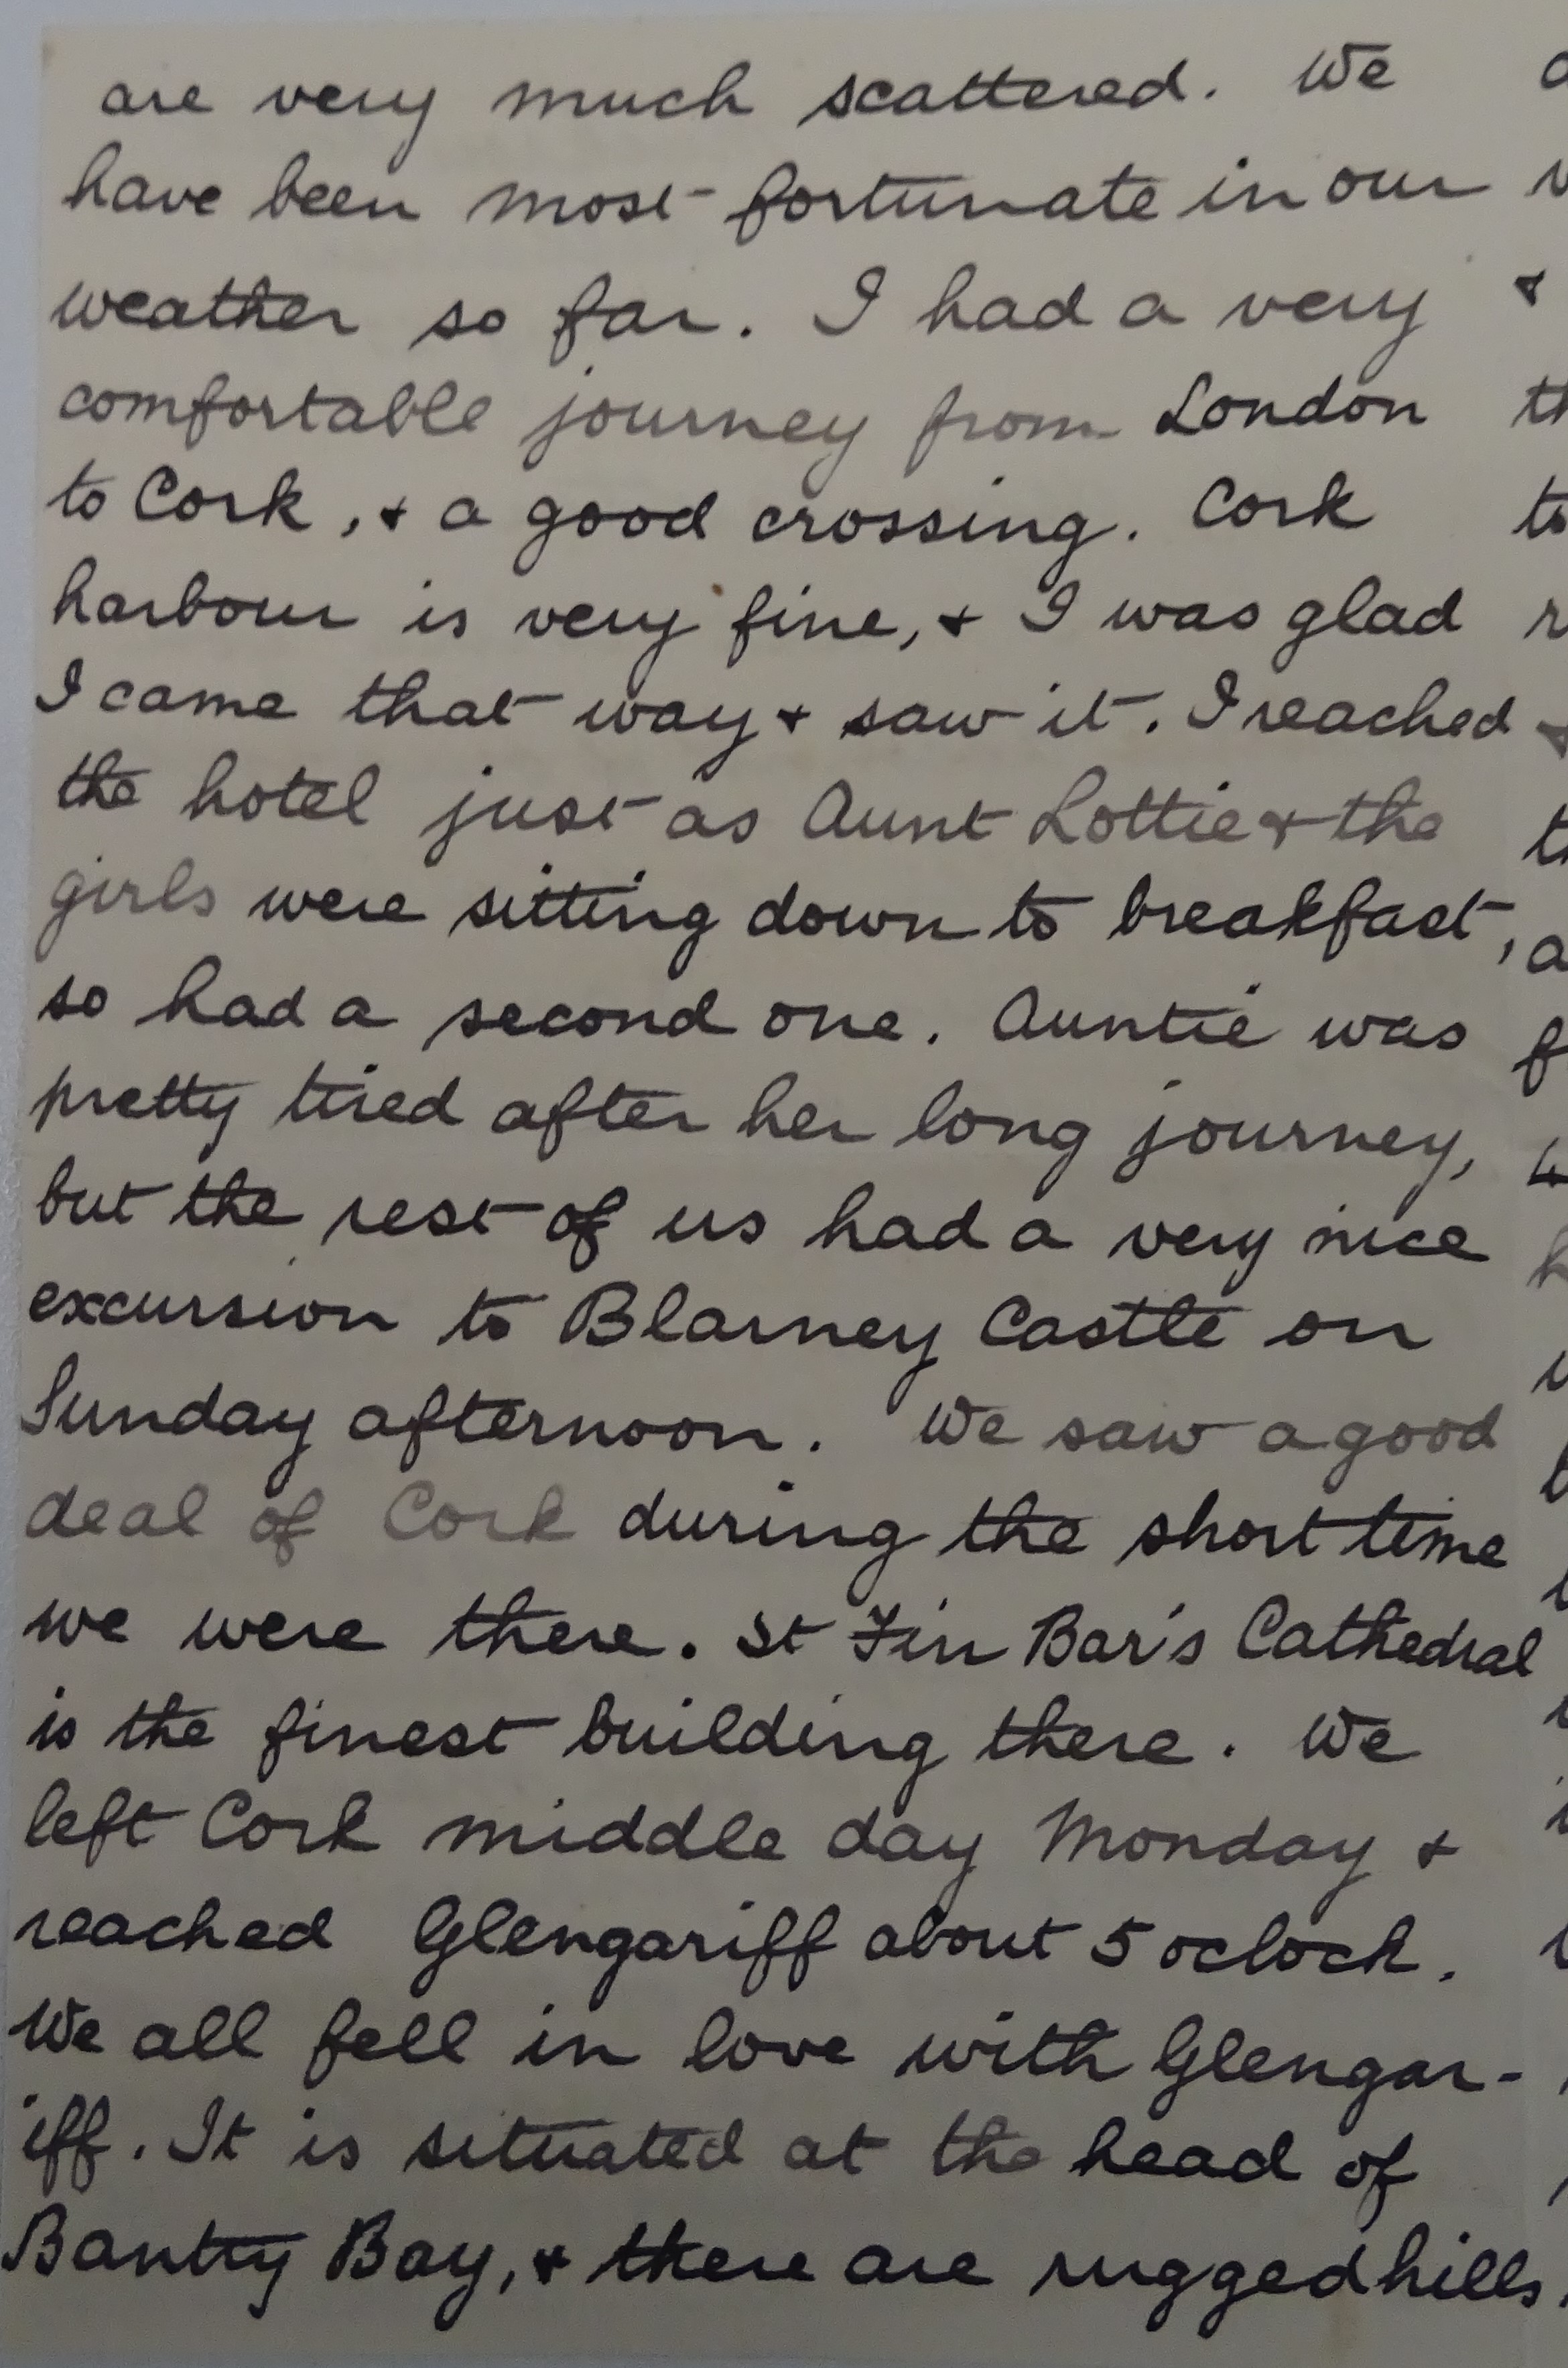 are very much scattered. We
have been most fortunate in our
weather so far. I had a very
comfortable journey from London
to Cork, & a good crossing. Cork
harbour is very fine, & I was glad
I came that way & saw it. I reached
the hotel just as Aunt Lottie & the
girls were sitting down to breakfast,
so had a second one. Auntie was
pretty tired after her long journey,
but the rest of us had a very nice
excursion to Blarney Castle on
Sunday afternoon. We saw a good
deal of Cork during the short time
we were there. St Fin Bar's Cathedral
is the finest building there. We
left Cork middle day Monday &
reached Glengariff about 5 oclock.
We all fell in love with Glengar-
iff. It is situated at the head of
Bantry Bay, & there are rugged hills